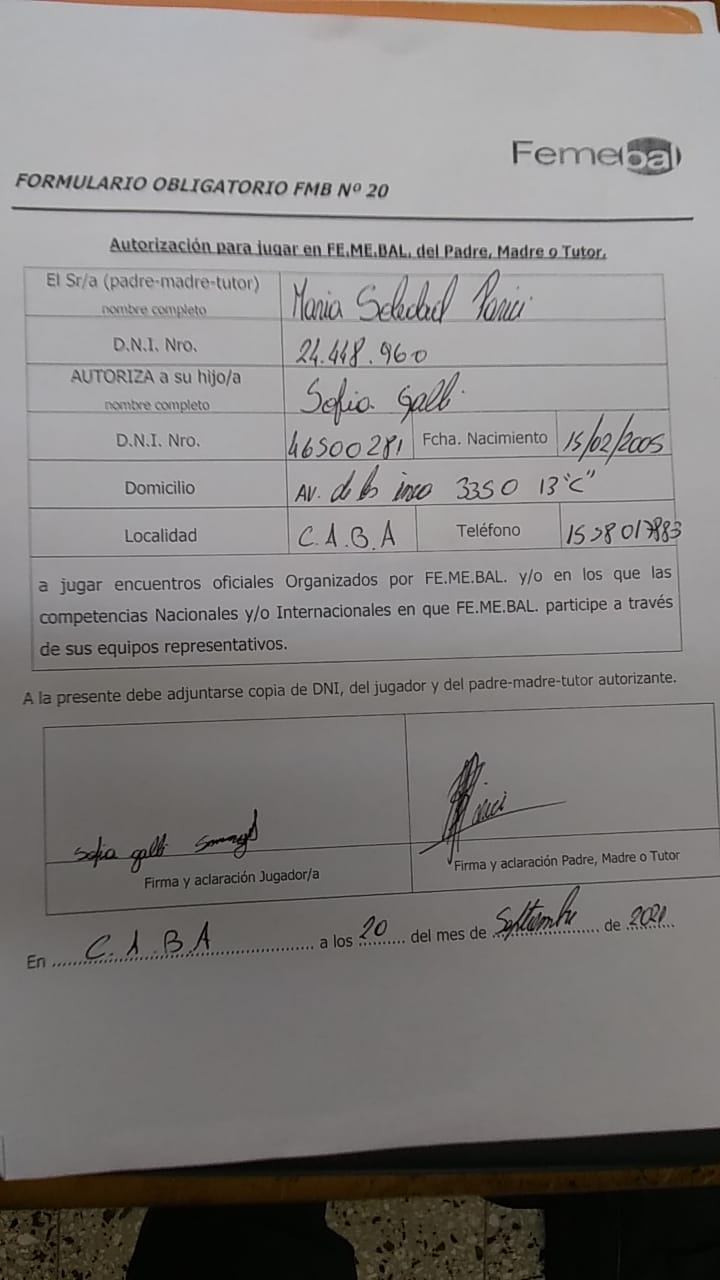 Femebal
FORMULARIO OBLIGATORIO FMB Nº 20
Autorización para jugar en FE.ME.BAL. del Padre, Madre o Tutor.
El Sr/a (padre-madre-tutor)
nombre completo
Maria Soledad
D.N.I. Nro.
24.448.960
AUTORIZA a su hijo/a
nombre completo
Sofia Galli
D.N.I. Nro.
46500281
Fcha. Nacimiento
15/02/2005
Domicilio
AV. de los 3350 13 "C"
Localidad
C.A.B.A
Teléfono
a jugar encuentros oficiales Organizados por FE.ME.BAL. y/o en los que las
competencias Nacionales y/o Internacionales en que FE.ME.BAL. participe a través
de sus equipos representativos.
A la presente debe adjuntarse copia de DNI, del jugador y del padre-madre-tutor autorizante.
Sofia galli
Firma y aclaración Jugador/a
Firma y aclaración Padre, Madre o Tutor
En C.A.B.A a los 20 del mes de Septiembre de 2021